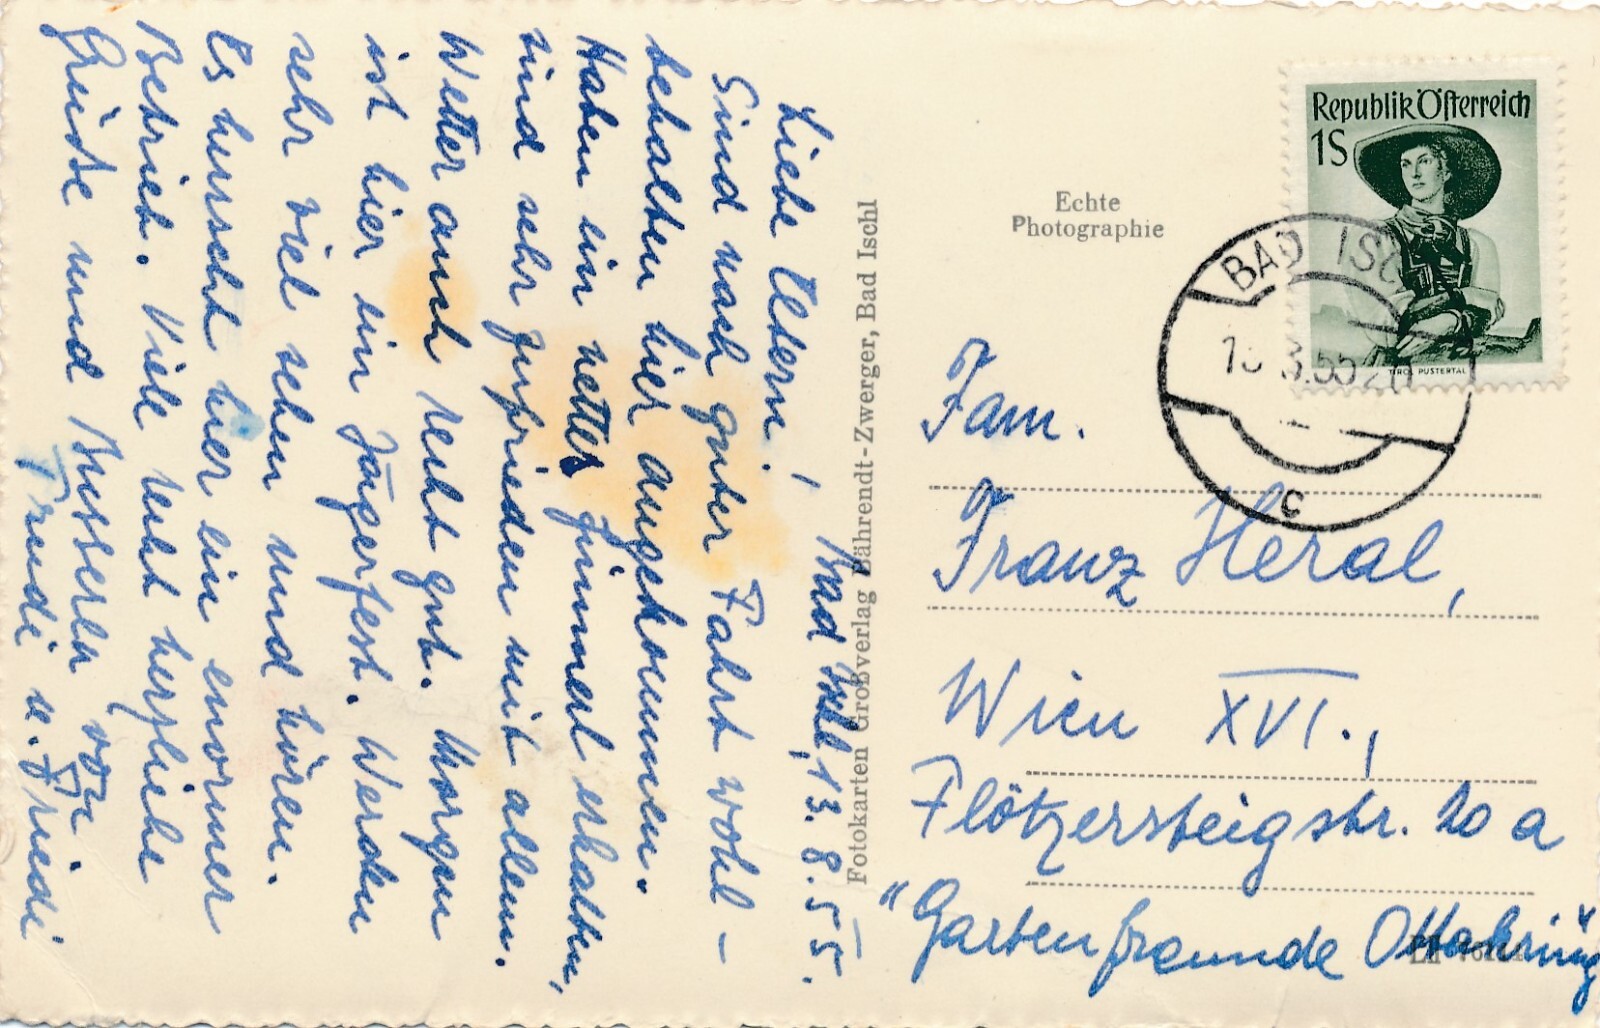 Bad Ischl, 13. 8. 55.
Liebe Eltern!
Sind nach guter Fahrt wohl-
behalten hier angekommen.
Haben ein nettes Zimmer erhalten,
sind sehr zufrieden mit allem.
Wetter auch recht gut. Morgen
ist hier ein Jägerfest. Werden
sehr viel sehen und hören.
Es herrscht hier ein enormer
Betrieb. Viele recht herzliche
Grüße und Busserln von
Trudi u. Friedi
Fotokarten Großverlag Bährendt-Zwerger, Bad Ischl
Echte
Photographie
Republik Österreich
1S
TIROL PUSTERTAL
BAD ISC
55 20
c
Fam.
Franz Heral,
Wien XVI.,
Flötzersteigstr. 20 a
"Gartenfreunde Ottakring"